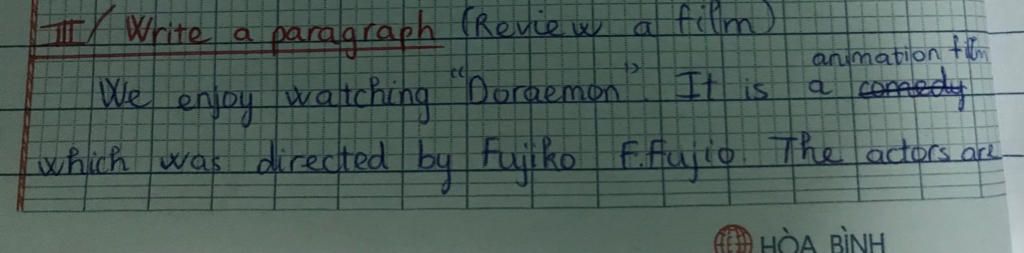 III/ Write a paragraph (Review a film)
animation film
We enjoy watching "Doraemon". It is a comedy
which was directed by Fujiko F.Fujio. The actors are
HÒA BÌNH